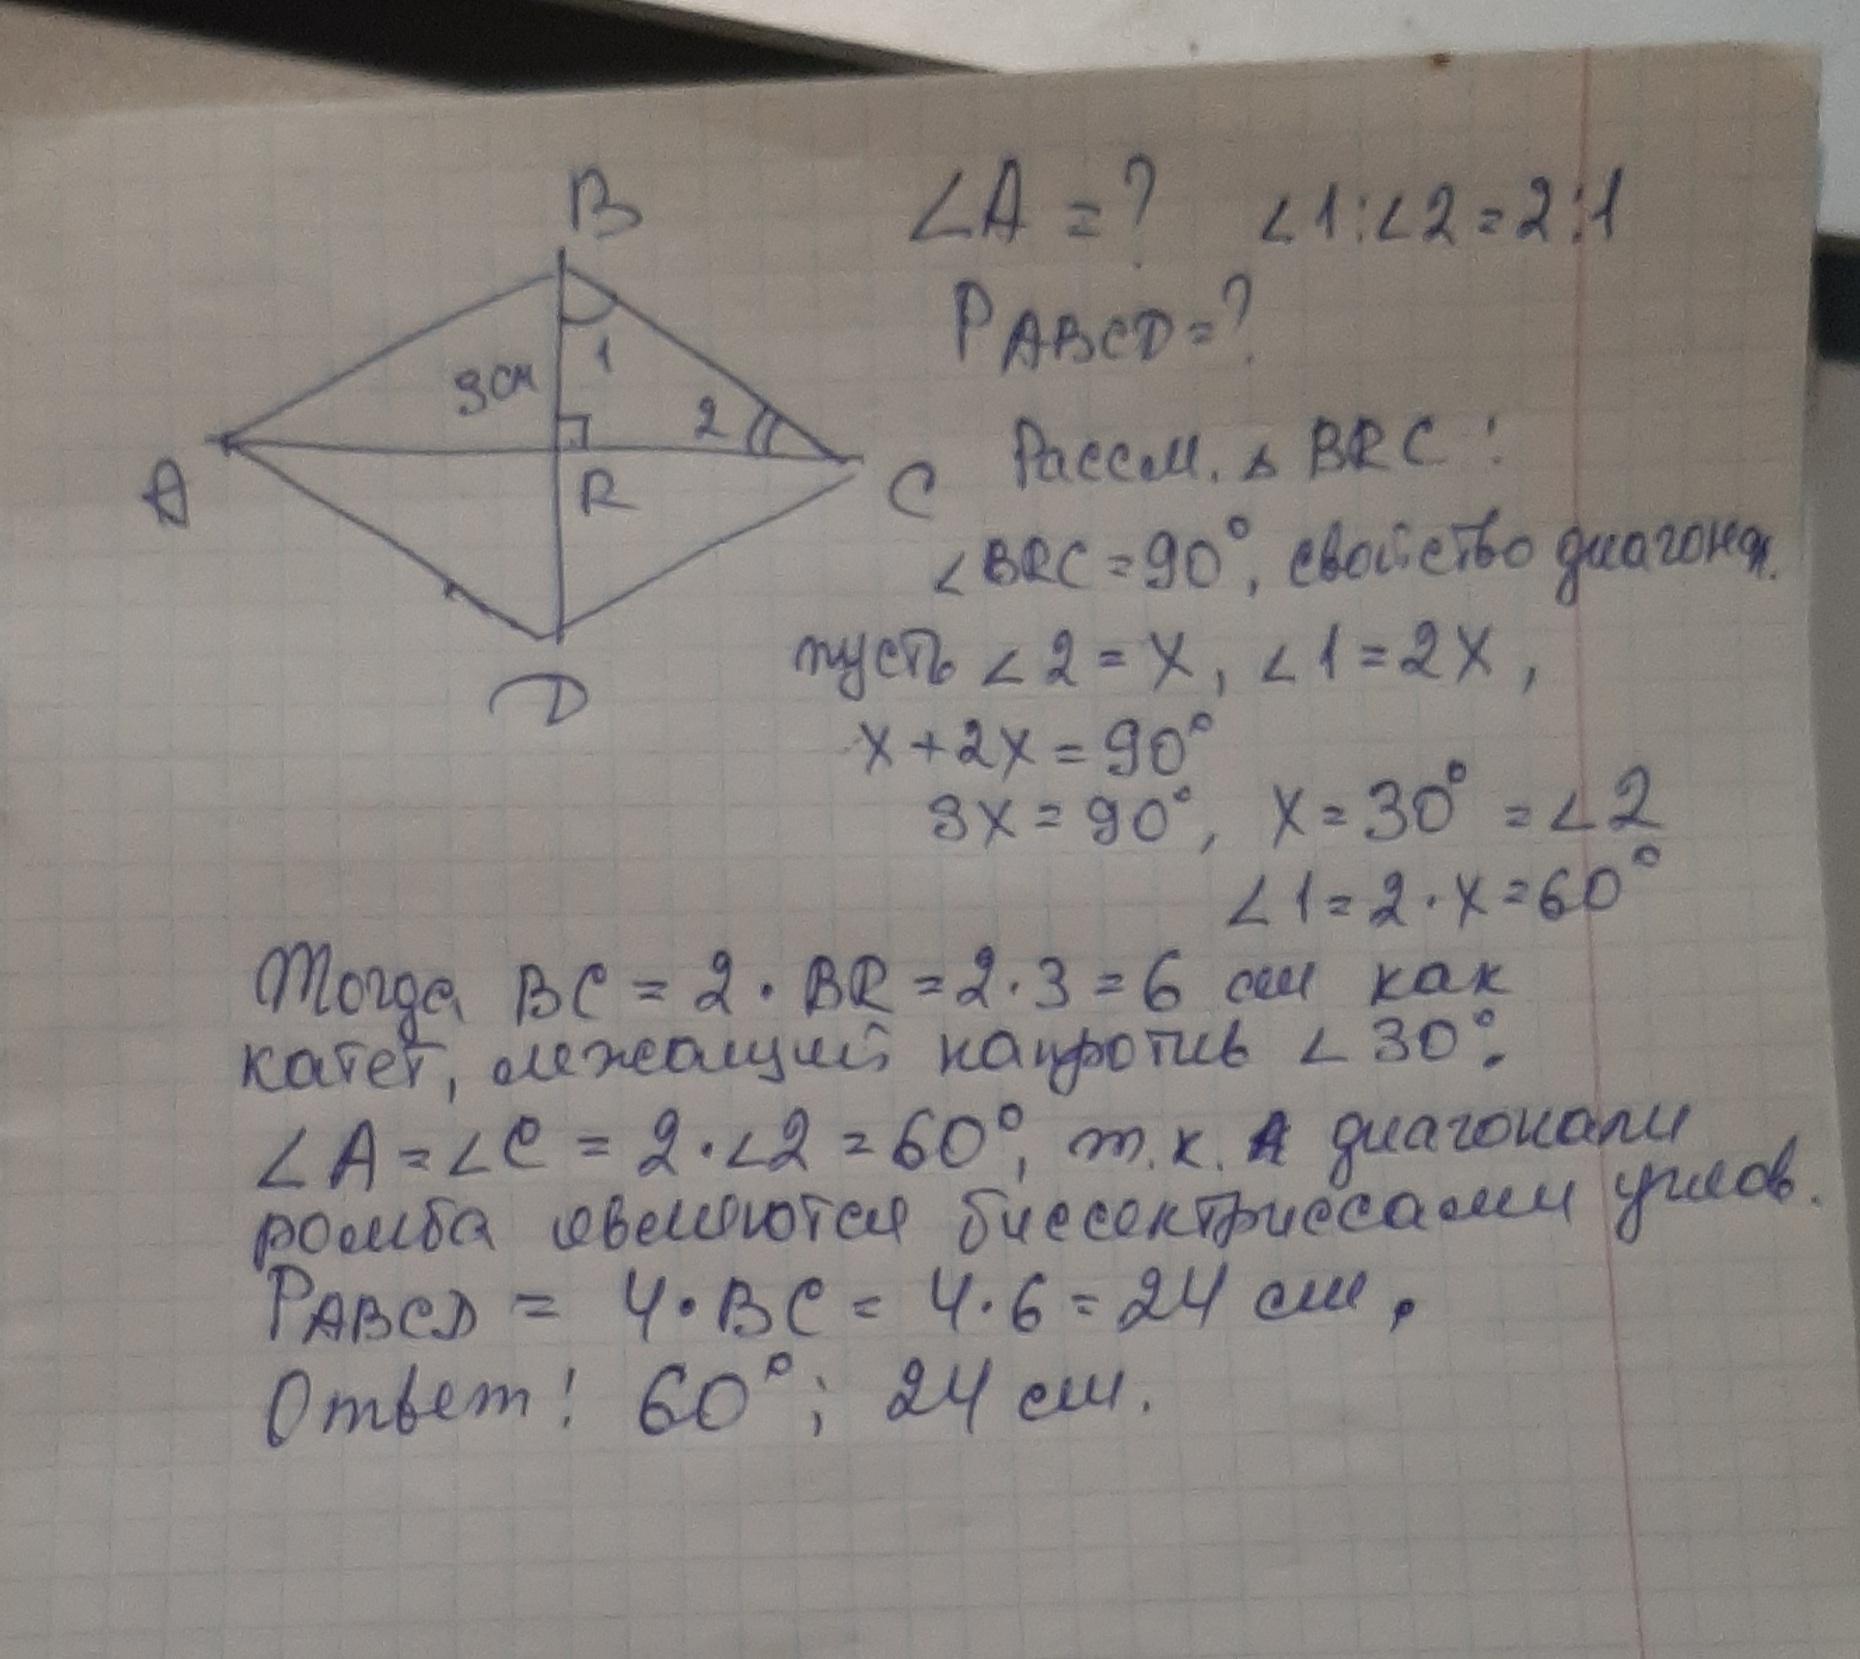 B
∠A = ? ∠1:∠2 = 2:1
P ABCD = ?
3см
1
2
A
R
C
D
Рассм. △ BRC:
∠BRC = 90°, свойство диагонал.
пусть ∠2 = x, ∠1 = 2x,
x + 2x = 90°
3x = 90°, x = 30° = ∠2
∠1 = 2·x = 60°
Тогда BC = 2·BR = 2·3 = 6 см как
катет, лежащий напротив ∠30°.
∠A = ∠C = 2·∠2 = 60°, т.к. диагонали
ромба являются биссектриссами углов.
P ABCD = 4·BC = 4·6 = 24 см.
Ответ: 60°; 24 см.